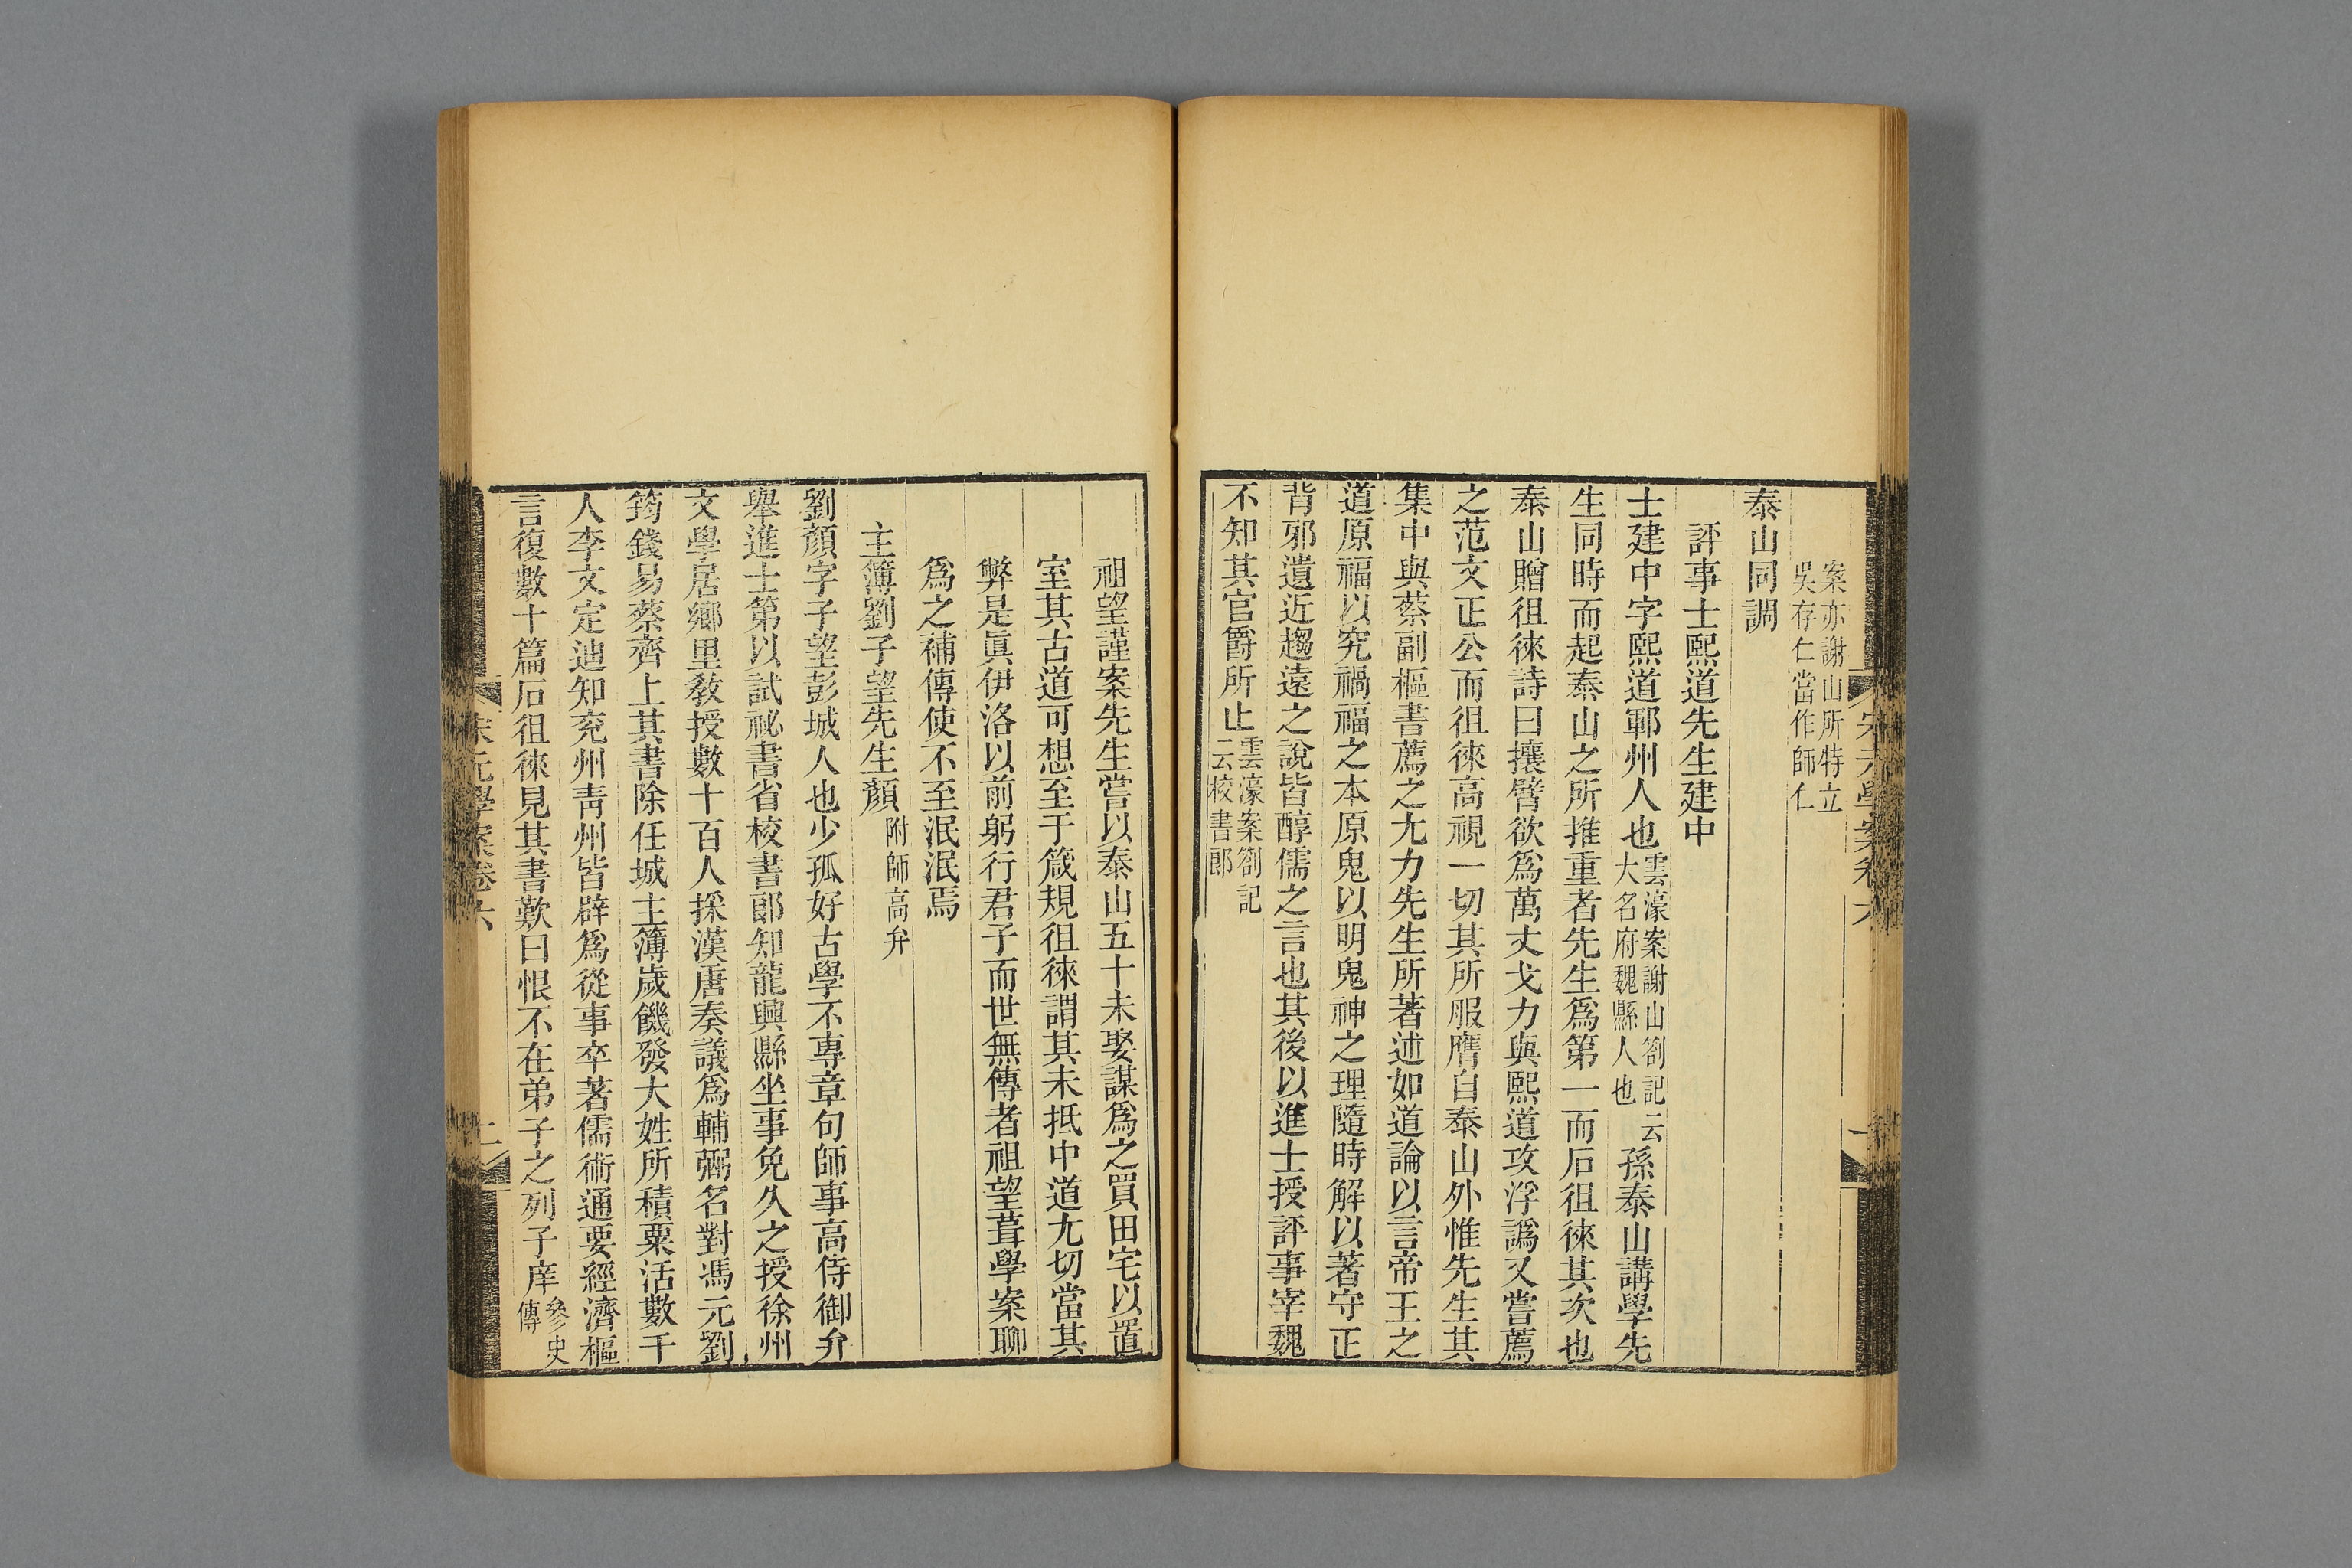 案亦謝山所特立
吳存仁當作師仁
泰山同調
評事士熙道先生建中
士建中字熙道鄆州人也雲濠案謝山劄記云大名府魏縣人也孫泰山講學先
生同時而起泰山之所推重者先生爲第一而石徂徠其次也
泰山贈徂徠詩曰攘臂欲爲萬丈戈力與熙道攻浮譌又嘗薦
之范文正公而徂徠高視一切其所服膺自泰山外惟先生其
集中與蔡副樞書薦之尤力先生所著述如道論以言帝王之
道原福以究禍福之本原鬼以明鬼神之理隨時解以著守正
背邪遺近趨遠之說皆醇儒之言也其後以進士授評事宰魏
不知其官爵所止雲濠案劄記云校書郎
祖望謹案先生嘗以泰山五十未娶謀爲之買田宅以置
室其古道可想至于箴規徂徠謂其未抵中道尤切當其
弊是眞伊洛以前躬行君子而世無傳者祖望葺學案聊
爲之補傳使不至泯泯焉
主簿劉子望先生顏附師高弁
劉顏字子望彭城人也少孤好古學不專章句師事高侍御弁
舉進士第以試祕書省校書郎知龍興縣坐事免久之授徐州
文學居鄉里敎授數十百人採漢唐奏議爲輔弼名對馮元劉
筠錢易蔡齊上其書除任城主簿歲饑發大姓所積粟活數千
人李文定迪知兖州靑州皆辟爲從事卒著儒術通要經濟樞
言復數十篇石徂徠見其書歎曰恨不在弟子之列子庠參史傳
宋元學案卷六
二